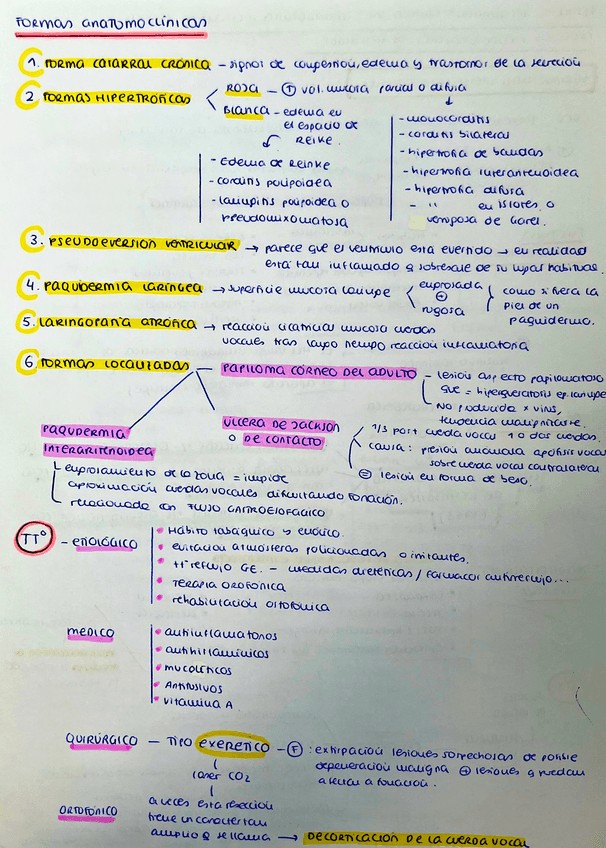 FORMAS ANATOMOCLÍNICAS
1. FORMA CATARRAL CRÓNICA - signos de congestión, edema y trastornos de la secreción
2. FORMAS HIPERTRÓFICAS
ROJA - ↑ vol. mucosa parcial o difusa
- monocorditis
- corditis bilateral
- hipertrofia de bandas
- hipertrofia interaritenoidea
- hipertrofia difusa
- " en islotes o
verrugosa de Garel.
BLANCA - edema en
el espacio de
REIKE.
- Edema de Reinke
- corditis polipoidea
- laringitis polipoidea o
pseudomixomatosa
3. PSEUDOEVERSIÓN VENTRICULAR → parece que el ventrículo está evertido → en realidad
está tan inflamado q sobresale de su lugar habitual.
4. PAQUIDERMIA LARÍNGEA → superficie mucosa laringe
engrosada
+
rugosa
como si fuera la
piel de un
paquidermo.
5. LARINGOPATÍA ATRÓFICA → reacción cicatricial mucosa cuerdas
vocales tras largo tiempo reacción inflamatoria
6 FORMAS LOCALIZADAS
PAPILOMA CÓRNEO DEL ADULTO - lesión aspecto papilomatoso
que = hiperqueratosis ep. laringe
No producida x virus,
tendencia malignizarse.
PAQUIDERMIA
INTERARITENOIDEA
engrosamiento de la zona = impide
aproximación cuerdas vocales dificultando fonación.
relacionada con FLUJO GASTROESOFÁGICO
ÚLCERA DE JACKSON
O DE CONTACTO
1/3 post cuerda vocal 1 o dos cuerdas.
causa: presión anómala apófisis vocal
sobre cuerda vocal contralateral
= lesión en forma de beso.
TTº - ETIOLÓGICO
• Hábito tabáquico y enólico.
• evitación atmósferas policionadas o irritantes.
• tt reflujo GE. - medidas dietéticas / fármacos antirreflujo...
• TERAPIA OROFÓNICA
• rehabilitación ortofónica
MEDICO
• antiinflamatorios
• antihistamínicos
• mucolíticos
• Antitusivos
• vitamina A.
QUIRÚRGICO - TIPO EXERETICO - F : extirpación lesiones sospechosas de posible
degeneración maligna + lesiones q puedan
afectar a fonación.
láser CO2
ORTOFÓNICO
a veces esta resección
tiene un carácter tan
amplio q se llama → DECORTICACIÓN DE LA CUERDA VOCAL